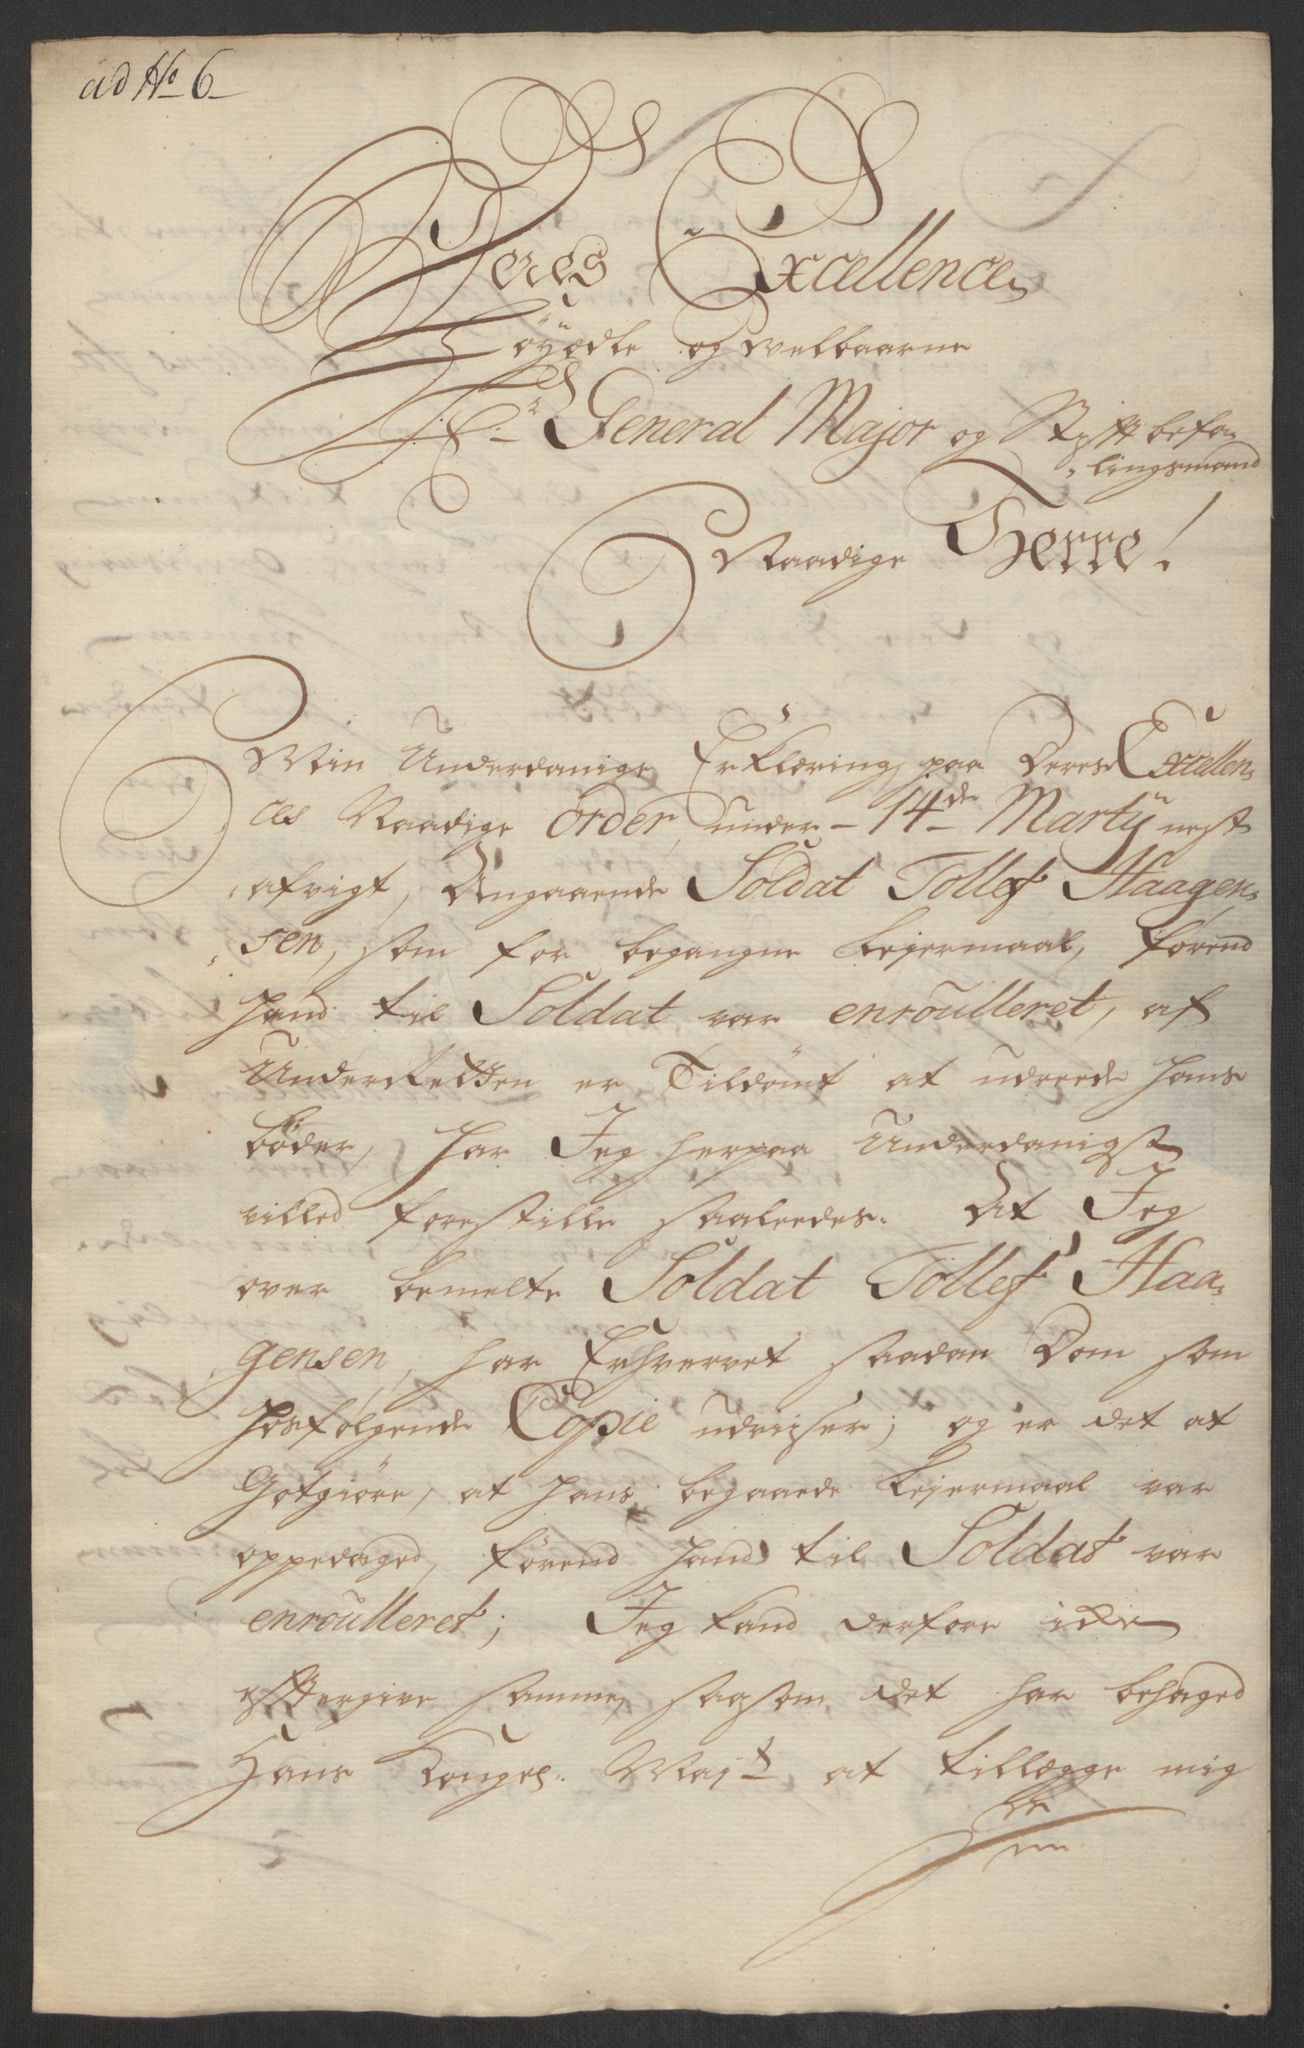 ad No 6
Deres Excellence
Höyædle og Welbaarne
Hr. General Major og Stift befa-
lingsmand
Naadige Herre!
Min Underdanige Erklæring paa Deres Excellen-
ces Naadige Order under 14de Martij nest
afvigt, Angaaende Soldat Tollef Haagen-
sen, som for begangne Leiermaal, förend
hand til Soldat var enroulleret, af
UnderRetten er Tildömt at udreede hans
böder, har Jeg herpaa Underdanigst
villed forestille saaleedes. At Jeg
over bemelte Soldat Tollef Haa-
gensen, har Erhvervet saadan Dom som
hosfölgende Copie udviser; og er det at
Gotgiöre, at hans begaaede Leiermaal var
oppedaged, förend hand til Soldat var
enroulleret; Jeg kand derfore icke
efftergive samme, saasom det har behaged
Hans Kongel. Majt at tillegge mig